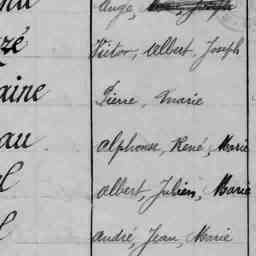 Ange,
zé Victor, Albert, Joseph
aine Pierre, Marie
au Alphonse, René, Marie
l Albert, Julien, Marie
l André, Jean, Marie